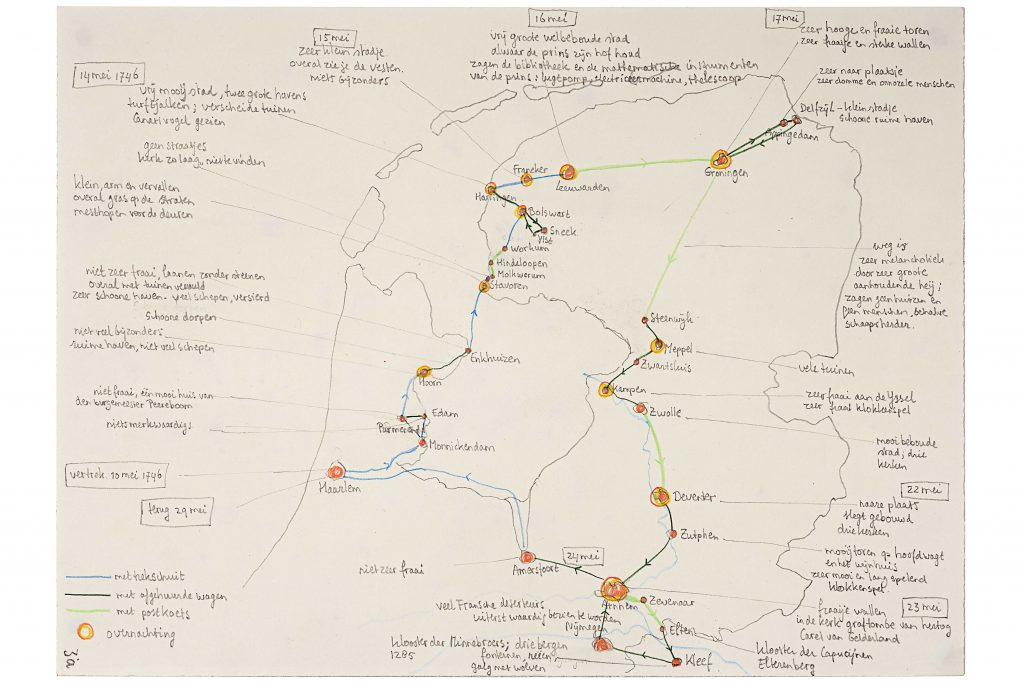 14 mei 1746
vrij mooij stad, twee grote havens
turftjalken; verscheide tuinen
Canarivogel gezien
15 mei
zeer klein stadje
overal zie je de vesten.
niets bijzonders
16 mei
vrij groote welbeboude stad
alwaar de prins zijn hof houd
zagen de bibliotheek en de mathematische instrumenten
van de prins: lugtpomp, electriceermachine, thelescoop
17 mei
zeer hooge en fraaie toren
zeer fraaije en sterke wallen
zeer naar plaatsje
zeer domme en onnozele menschen
Delfzijl - klein stadje
schoone ruime haven
Appingedam
Groningen
geen straatjes
kerk zo laag, niet te vinden
klein, arm en vervallen
overal gras op de straten
mesthopen voor de deuren
Franeker
Leeuwarden
Harlingen
Bolswart
Sneek
Ylst
Workum
Hindeloopen
Molkwerum
Stavoren
weg is
zeer melancholiek
door zeer groote
aanhoudende heij;
zagen geen huizen en
geen menschen, behalve
schaapsherder.
niet zeer fraai, laanen zonder steenen
overal met tuinen vervuld
zeer schoone haven - veel schepen, versierd
Schoone dorpen
niet veel bijzonders;
ruime haven, niet veel schepen
Enkhuizen
Hoorn
Steenwijk
Meppel
Zwartsluis
vele tuinen
Kampen
zeer fraai aan de IJssel
zeer fraai klokkenspel
Zwolle
mooi beboude
stad; drie
kerken
niet fraai, één mooi huis van
den burgemeester Peereboom
niets merkwaardigs
Edam
Purmerend
Monnickendam
vertrek 10 mei 1746
Haarlem
terug 29 mei
Deventer
22 mei
naare plaats
slegt gebouwd
drie kerken
Zutphen
mooij toren op hoofdwagt
en het wijnhuis
zeer mooi en lang spelend
klokkenspel.
24 mei
niet zeer fraai
Amersfoort
met trekschuit
met afgehuurde wagen
met postkoets
overnachting
Arnhem
Zevenaar
23 mei
fraaije wallen
in de kerk graftombe van hertog
Carel van Gelderland
veel Fransche deserteurs
uiterst waardig bezien te worden
Nijmegen
Elten
Klooster der Capucijnen
Eltenberg
Klooster der Minnebroers; drie bergen
1285
fonteinen,
galg met wolven
Kleef
3a